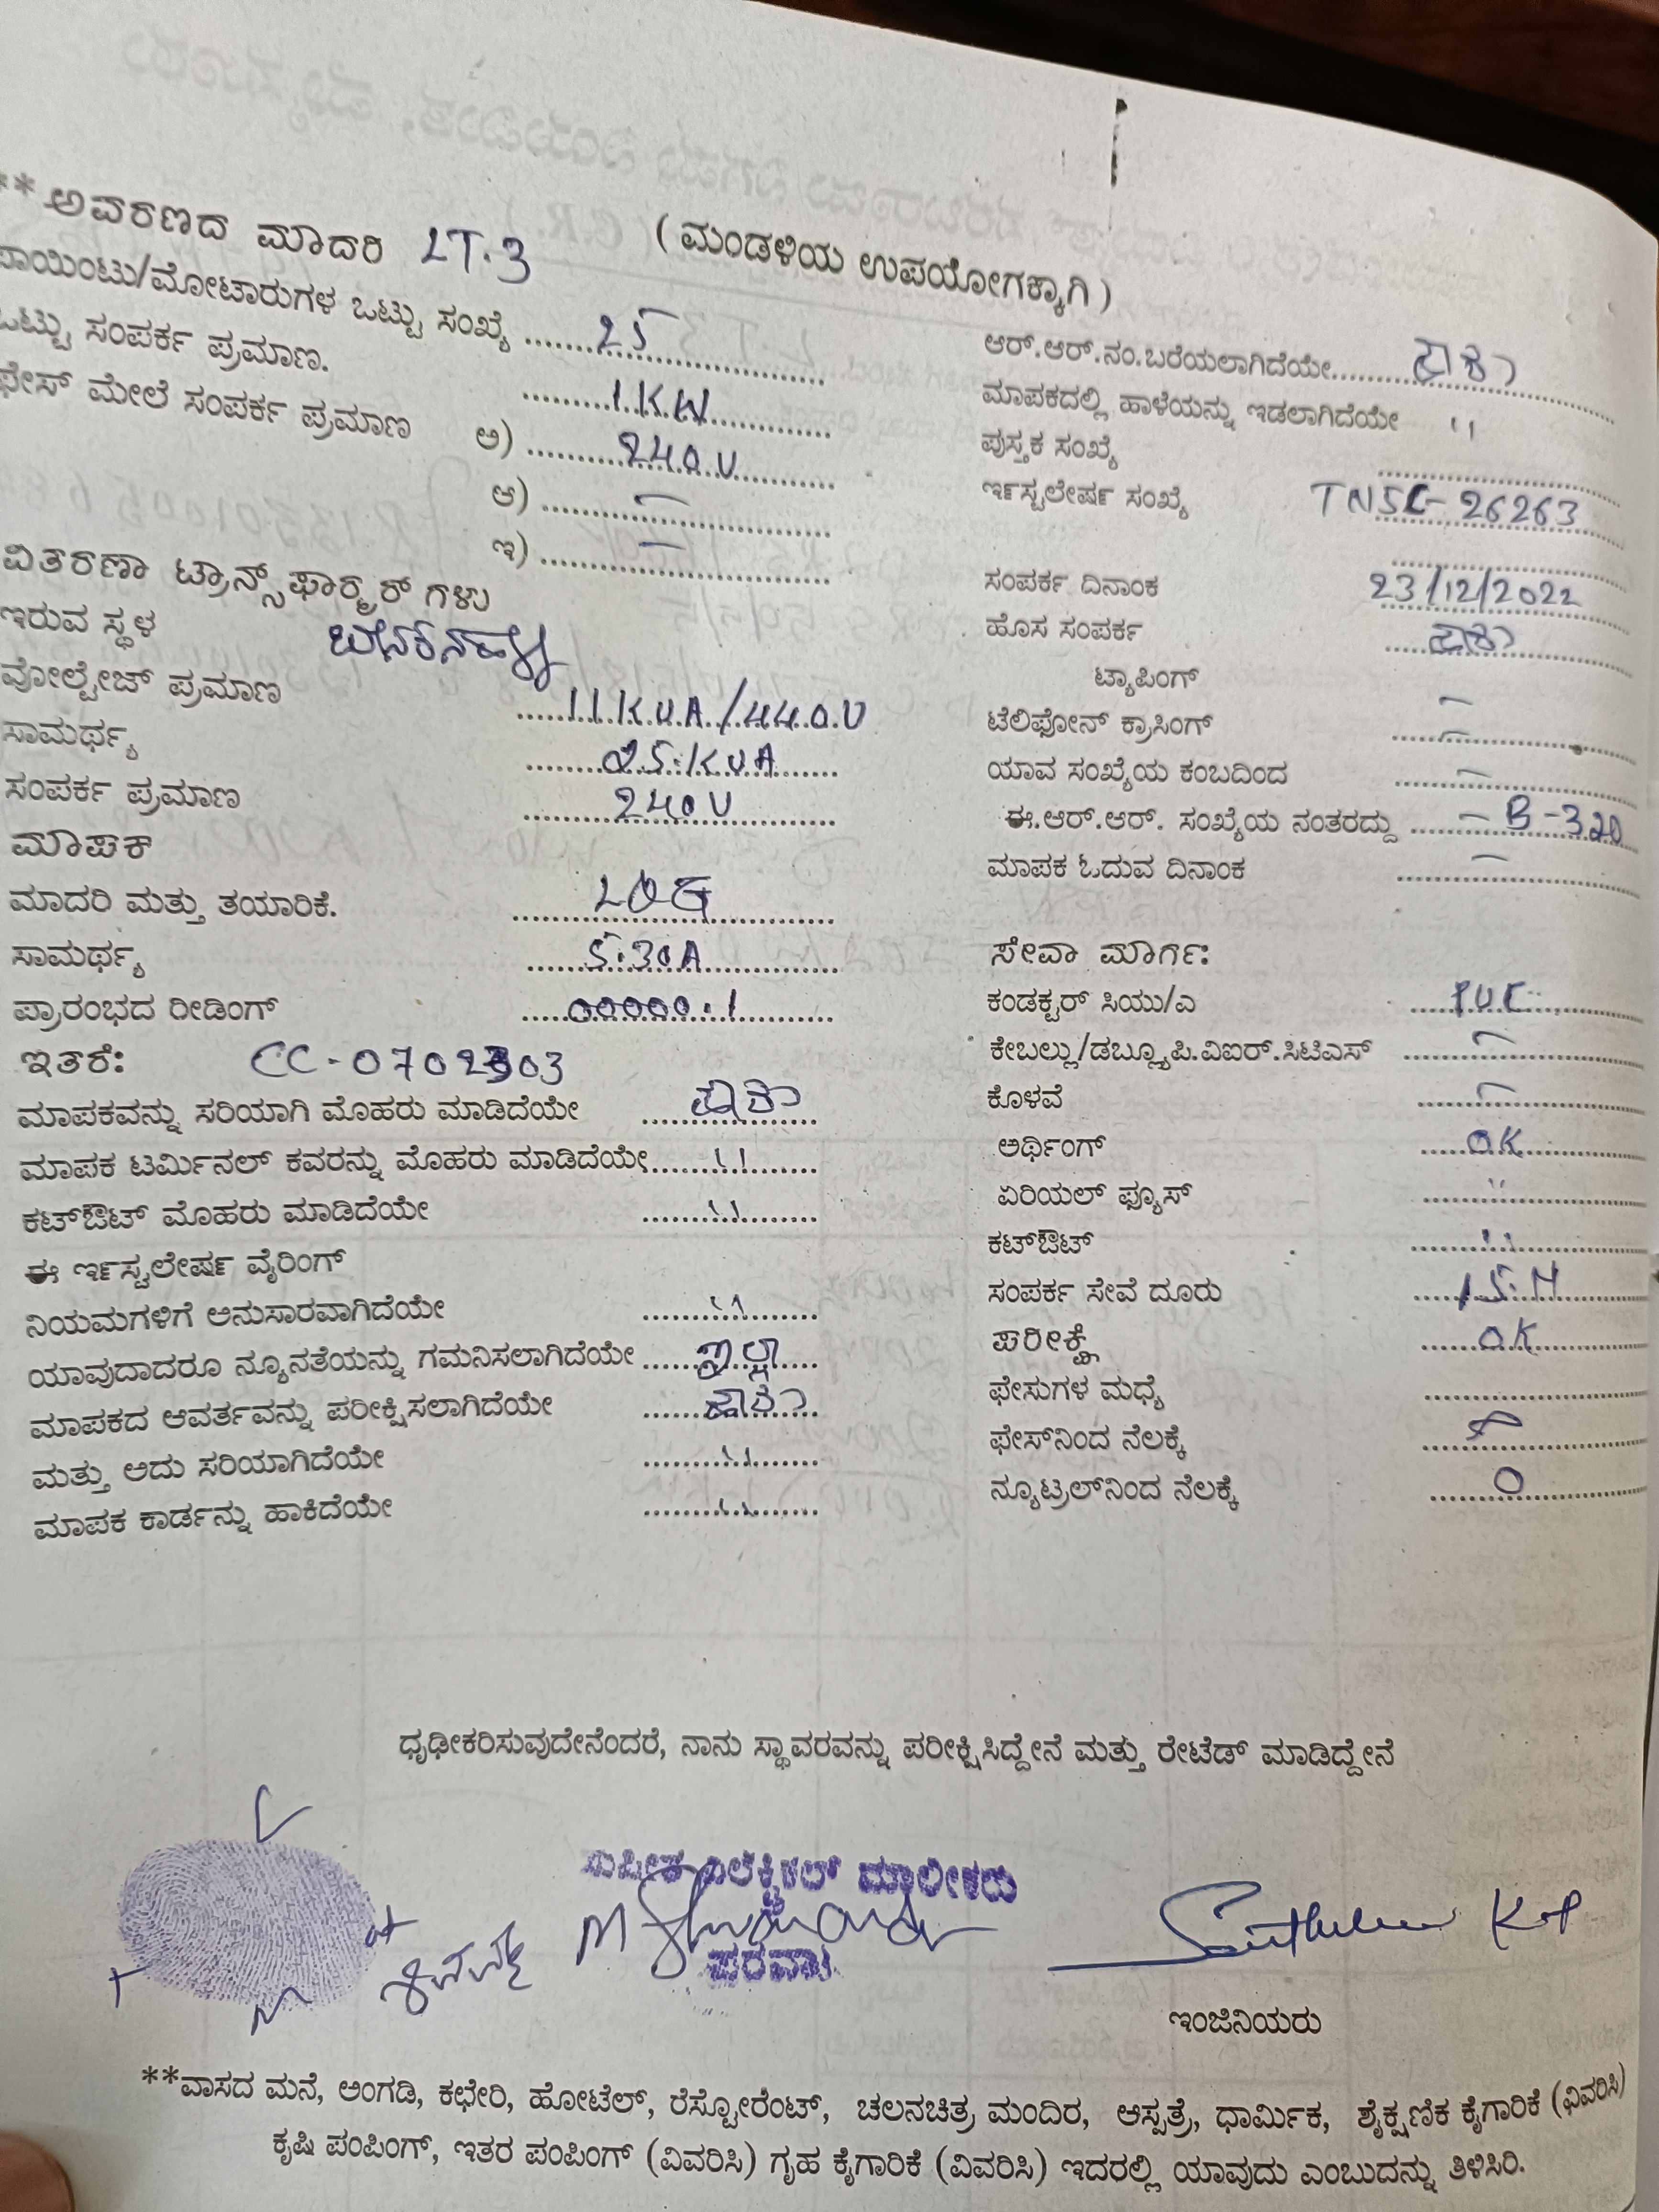 **ಅವರಣದ ಮಾದರಿ LT.3 (ಮಂಡಳಿಯ ಉಪಯೋಗಕ್ಕಾಗಿ)
ಪಾಯಿಂಟು/ಮೋಟಾರುಗಳ ಒಟ್ಟು ಸಂಖ್ಯೆ 25
ಒಟ್ಟು ಸಂಪರ್ಕ ಪ್ರಮಾಣ. 1KW
ಫೇಸ್ ಮೇಲೆ ಸಂಪರ್ಕ ಪ್ರಮಾಣ ಅ) 240V
ಆ) —
ಇ) —
ವಿತರಣಾ ಟ್ರಾನ್ಸ್‌ಫಾರ್ಮರ್ ಗಳು
ಇರುವ ಸ್ಥಳ
ವೋಲ್ಟೇಜ್ ಪ್ರಮಾಣ 11KVA/440V
ಸಾಮರ್ಥ್ಯ 25.KVA
ಸಂಪರ್ಕ ಪ್ರಮಾಣ 240V
ಮಾಪಕ
ಮಾದರಿ ಮತ್ತು ತಯಾರಿಕೆ.
ಸಾಮರ್ಥ್ಯ 5.30A
ಪ್ರಾರಂಭದ ರೀಡಿಂಗ್ 00000.1
ಇತರೆ:
ಮಾಪಕವನ್ನು ಸರಿಯಾಗಿ ಮೊಹರು ಮಾಡಿದೆಯೇ ಹೌದು
ಮಾಪಕ ಟರ್ಮಿನಲ್ ಕವರನ್ನು ಮೊಹರು ಮಾಡಿದೆಯೇ "
ಕಟ್‌ಔಟ್ ಮೊಹರು ಮಾಡಿದೆಯೇ "
ಈ ಇನ್‌ಸ್ಟಲೇಷನ್ ವೈರಿಂಗ್
ನಿಯಮಗಳಿಗೆ ಅನುಸಾರವಾಗಿದೆಯೇ "
ಯಾವುದಾದರೂ ನ್ಯೂನತೆಯನ್ನು ಗಮನಿಸಲಾಗಿದೆಯೇ ಇಲ್ಲ
ಮಾಪಕದ ಆವರ್ತವನ್ನು ಪರೀಕ್ಷಿಸಲಾಗಿದೆಯೇ ಹೌದು
ಮತ್ತು ಅದು ಸರಿಯಾಗಿದೆಯೇ "
ಮಾಪಕ ಕಾರ್ಡನ್ನು ಹಾಕಿದೆಯೇ "
ಆರ್.ಆರ್.ನಂ.ಬರೆಯಲಾಗಿದೆಯೇ ಹೌದು
ಮಾಪಕದಲ್ಲಿ ಹಾಳೆಯನ್ನು ಇಡಲಾಗಿದೆಯೇ "
ಪುಸ್ತಕ ಸಂಖ್ಯೆ
ಇನ್‌ಸ್ಟಲೇಷನ್ ಸಂಖ್ಯೆ TNSL-26263
ಸಂಪರ್ಕ ದಿನಾಂಕ 23/12/2022
ಹೊಸ ಸಂಪರ್ಕ ಹೌದು
ಟ್ಯಾಪಿಂಗ್ —
ಟೆಲಿಫೋನ್ ಕ್ರಾಸಿಂಗ್ —
ಯಾವ ಸಂಖ್ಯೆಯ ಕಂಬದಿಂದ —
ಈ.ಆರ್.ಆರ್. ಸಂಖ್ಯೆಯ ನಂತರದ್ದು — B-320
ಮಾಪಕ ಓದುವ ದಿನಾಂಕ —
ಸೇವಾ ಮಾರ್ಗ:
ಕಂಡಕ್ಟರ್ ಸಿಯು/ಎ P.V.C
ಕೇಬಲ್ಲು/ಡಬ್ಲ್ಯೂಪಿ.ವಿಐಆರ್.ಸಿಟಿಎಸ್ —
ಕೊಳವೆ —
ಅರ್ಥಿಂಗ್ O.K
ಏರಿಯಲ್ ಫ್ಯೂಸ್ "
ಕಟ್‌ಔಟ್ "
ಸಂಪರ್ಕ ಸೇವೆ ದೂರು 15.M
ಪರೀಕ್ಷೆ O.K
ಫೇಸುಗಳ ಮಧ್ಯೆ
ಫೇಸ್‌ನಿಂದ ನೆಲಕ್ಕೆ
ನ್ಯೂಟ್ರಲ್‌ನಿಂದ ನೆಲಕ್ಕೆ 0
ಧೃಢೀಕರಿಸುವುದೇನೆಂದರೆ, ನಾನು ಸ್ಥಾವರವನ್ನು ಪರೀಕ್ಷಿಸಿದ್ದೇನೆ ಮತ್ತು ರೇಟೆಡ್ ಮಾಡಿದ್ದೇನೆ
ಎಲೆಕ್ಟ್ರಿಕಲ್ ಮಾಲೀಕರು
ಇಂಜಿನಿಯರು
**ವಾಸದ ಮನೆ, ಅಂಗಡಿ, ಕಛೇರಿ, ಹೋಟೆಲ್, ರೆಸ್ಟೋರೆಂಟ್, ಚಲನಚಿತ್ರ ಮಂದಿರ, ಆಸ್ಪತ್ರೆ, ಧಾರ್ಮಿಕ, ಶೈಕ್ಷಣಿಕ ಕೈಗಾರಿಕೆ (ವಿವರಿಸಿ)
ಕೃಷಿ ಪಂಪಿಂಗ್, ಇತರ ಪಂಪಿಂಗ್ (ವಿವರಿಸಿ) ಗೃಹ ಕೈಗಾರಿಕೆ (ವಿವರಿಸಿ) ಇದರಲ್ಲಿ ಯಾವುದು ಎಂಬುದನ್ನು ತಿಳಿಸಿರಿ.